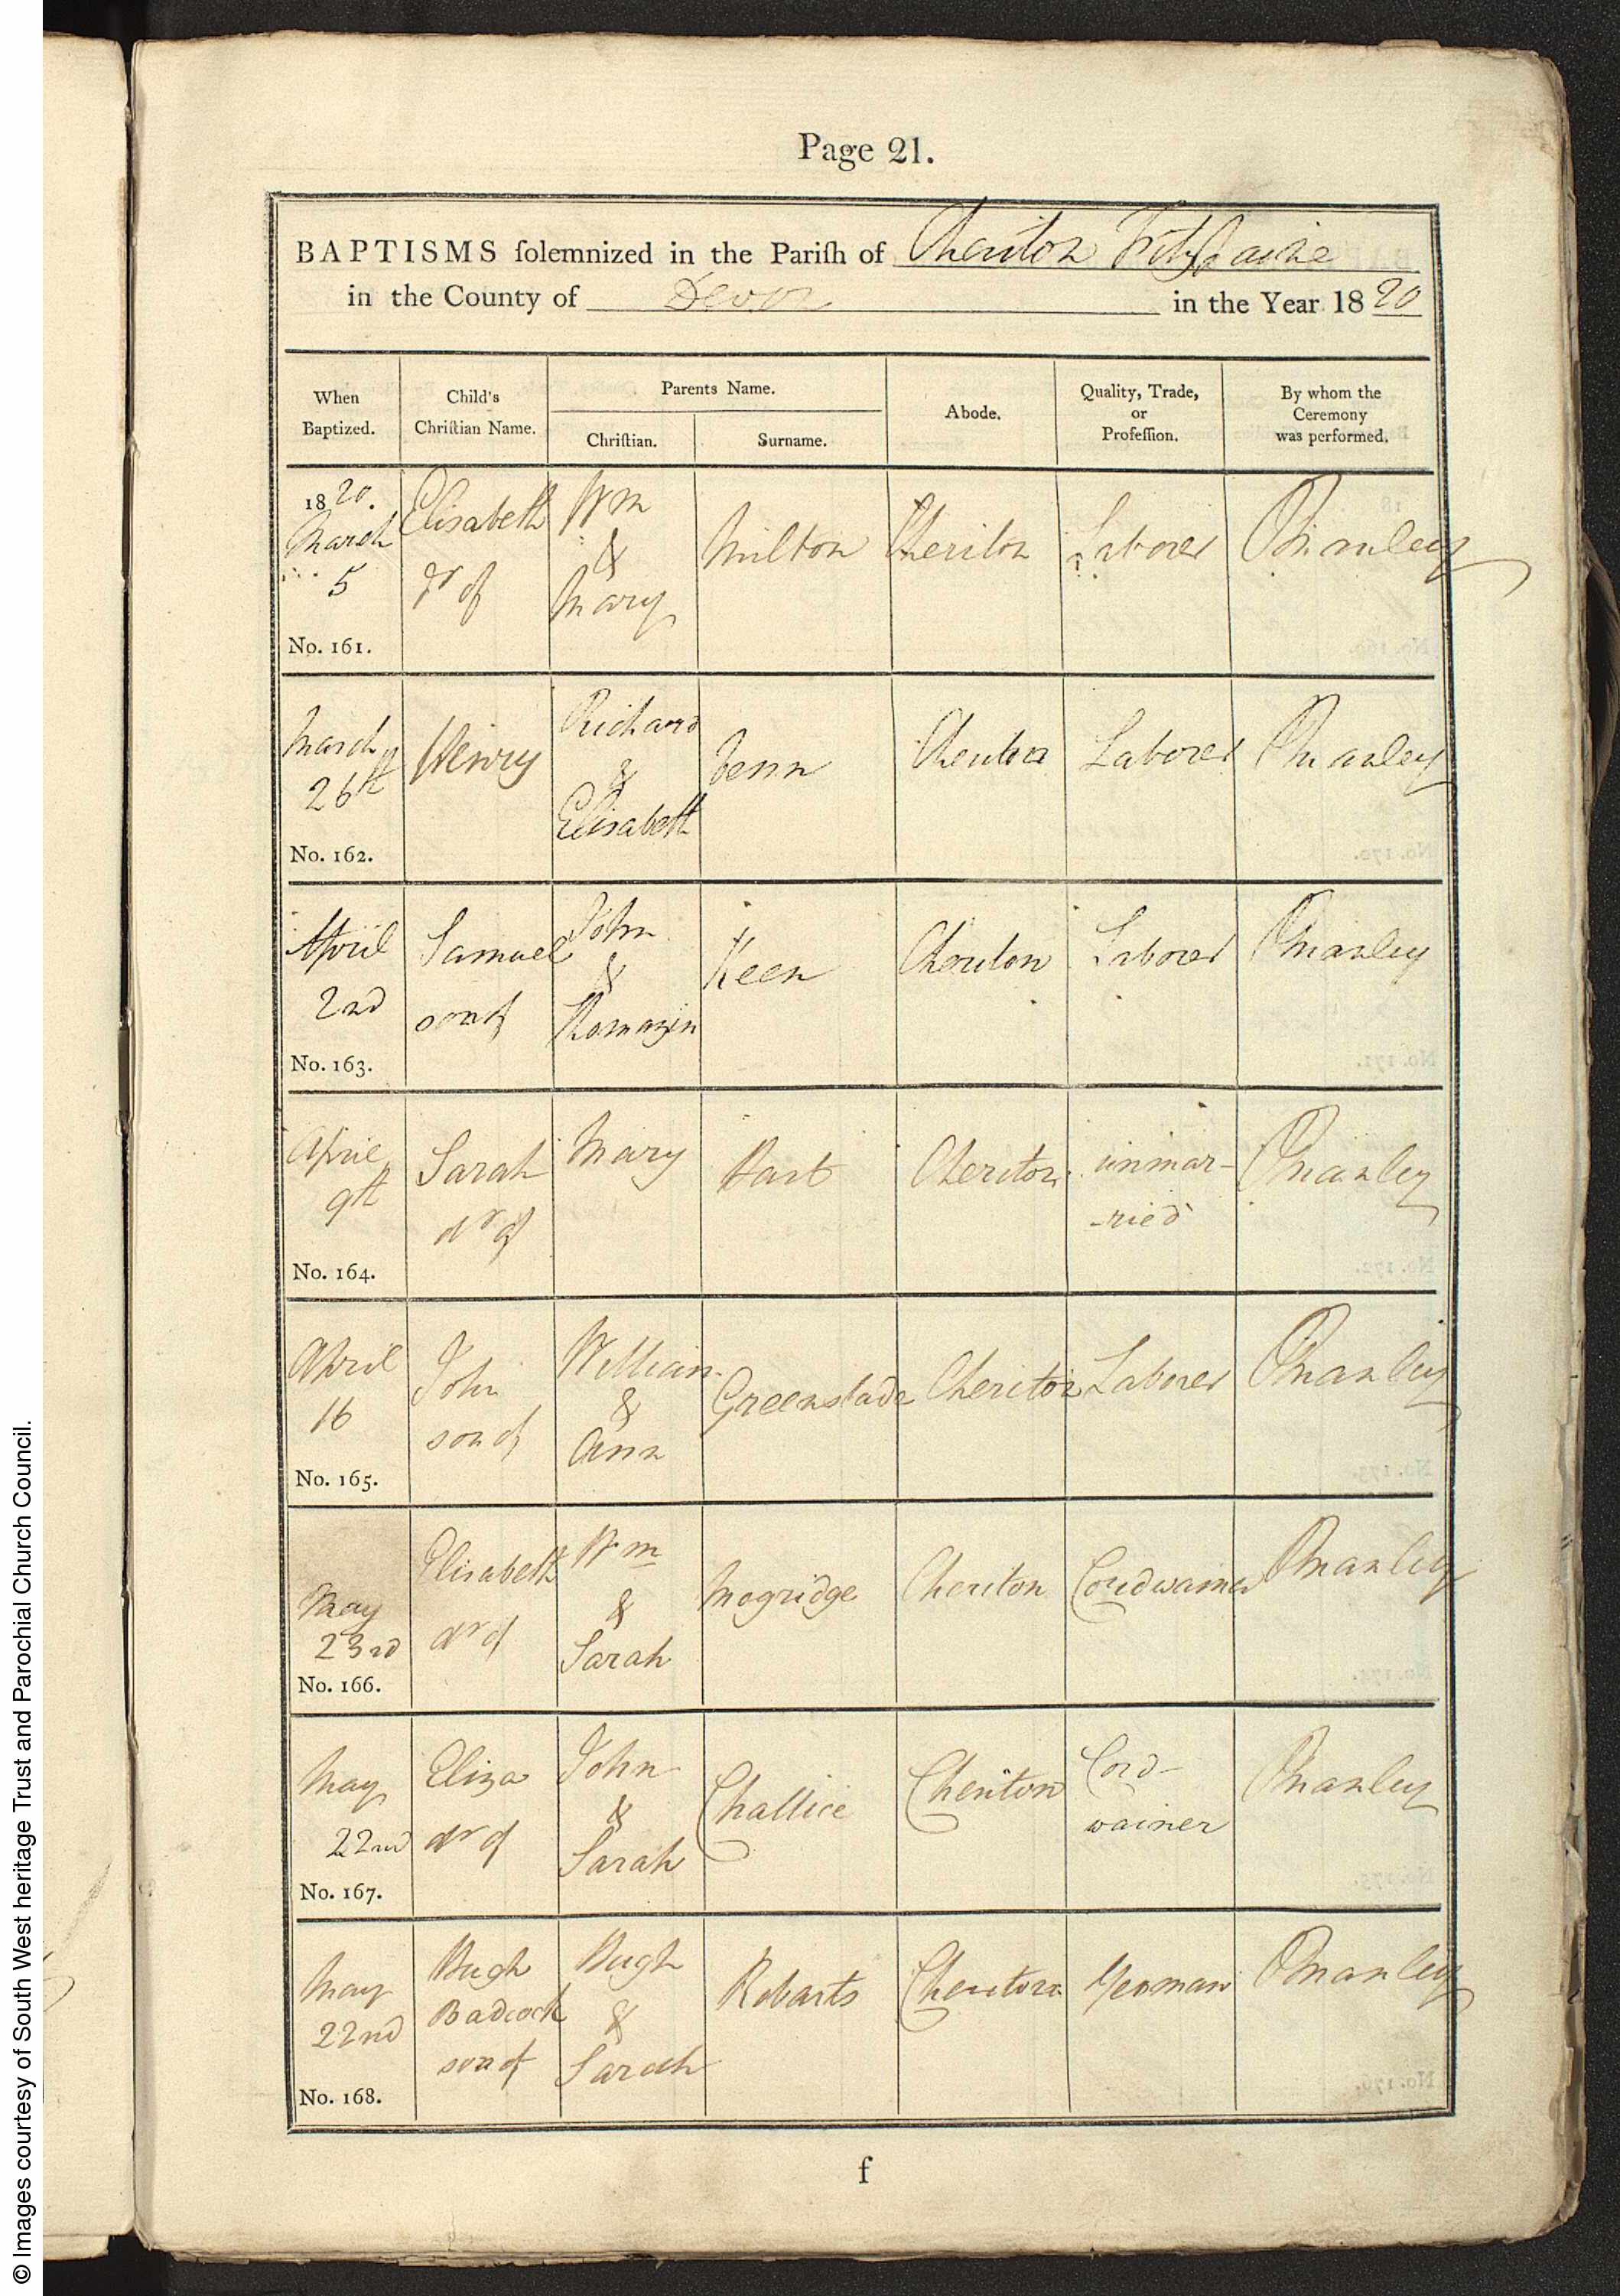 Page 21.
BAPTISMS solemnized in the Parish of Cheriton Fitzpaine
in the County of Devon in the Year 1820
When
Baptized.
Child's
Christian Name.
Parents Name.
Christian.
Surname.
Abode.
Quality, Trade,
or
Profession.
By whom the
Ceremony
was performed.
1820.
March
5
No. 161.
Elisabeth
dr of
Wm
&
Mary
Milton
Cheriton
Laborer
Manley
March
26th
No. 162.
Henry
Richard
&
Elisabeth
Venn
Cheriton
Laborer
Manley
April
2nd
No. 163.
Samuel
son of
John
&
Thomazin
Keen
Cheriton
Laborer
Manley
April
9th
No. 164.
Sarah
dr of
Mary
Hart
Cheriton
unmar-
-ried
Manley
April
16
No. 165.
John
son of
William
&
Ann
Greenslade
Cheriton
Laborer
Manley
May
23rd
No. 166.
Elisabeth
dr of
Wm
&
Sarah
Mogridge
Cheriton
Cordwainer
Manley
May
22nd
No. 167.
Eliza
dr of
John
&
Sarah
Challice
Cheriton
Cord-
wainer
Manley
May
22nd
No. 168.
Hugh
Badcock
son of
Hugh
&
Sarah
Robarts
Cheriton
Yeoman
Manley
f
© Images courtesy of South West heritage Trust and Parochial Church Council.